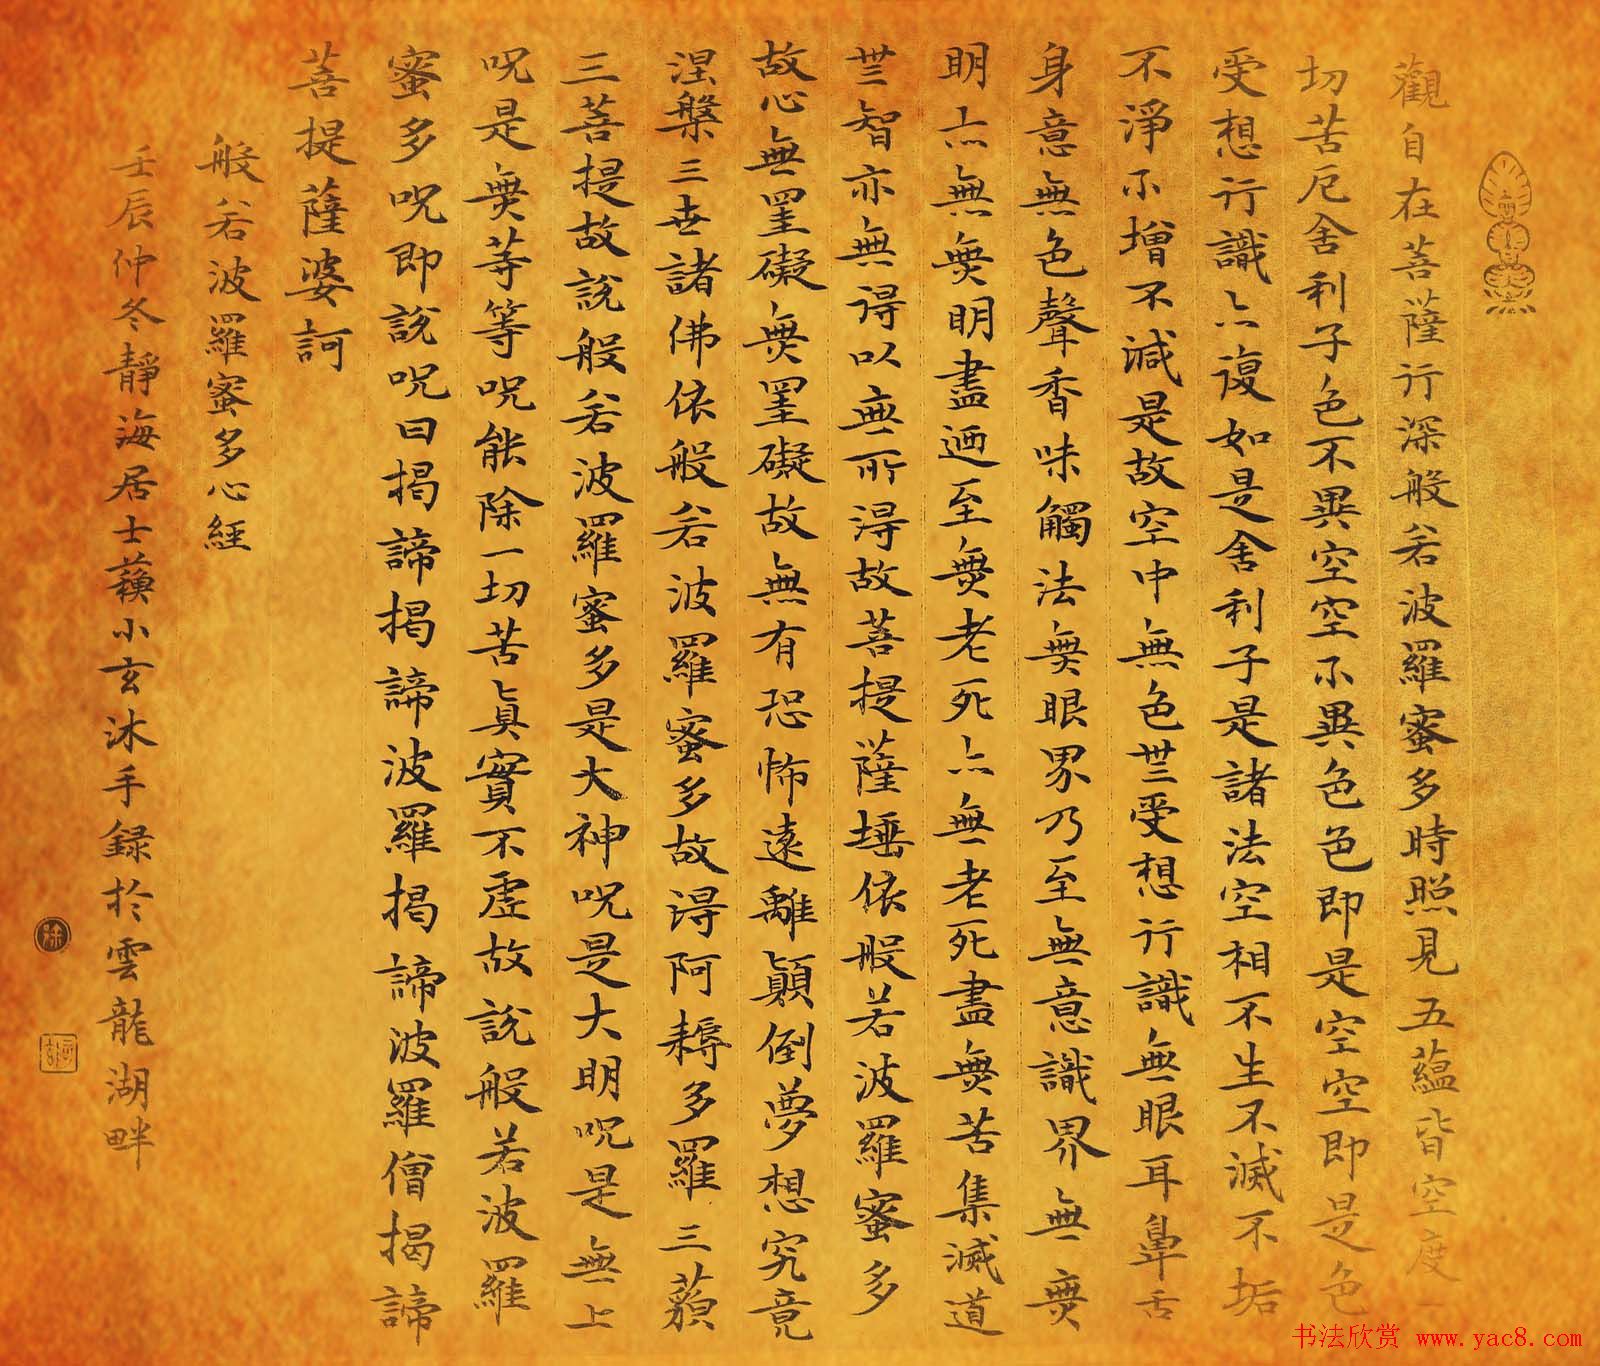 觀自在菩薩行深般若波羅蜜多時照見五蘊皆空度一
切苦厄舍利子色不異空空不異色色即是空空即是色
受想行識亦復如是舍利子是諸法空相不生不滅不垢
不淨不增不減是故空中無色無受想行識無眼耳鼻舌
身意無色聲香味觸法無眼界乃至無意識界無無
明亦無無明盡迺至無老死亦無老死盡無苦集滅道
無智亦無得以無所得故菩提薩埵依般若波羅蜜多
故心無罣礙無罣礙故無有恐怖遠離顛倒夢想究竟
涅槃三世諸佛依般若波羅蜜多故得阿耨多羅三藐
三菩提故說般若波羅蜜多是大神呪是大明呪是無上
呪是無等等呪能除一切苦真實不虛故說般若波羅
蜜多呪即說呪曰揭諦揭諦波羅揭諦波羅僧揭諦
菩提薩婆訶
般若波羅蜜多心經
壬辰仲冬靜海居士蘋小玄沐手録於雲龍湖畔
书法欣赏 www.yac8.com